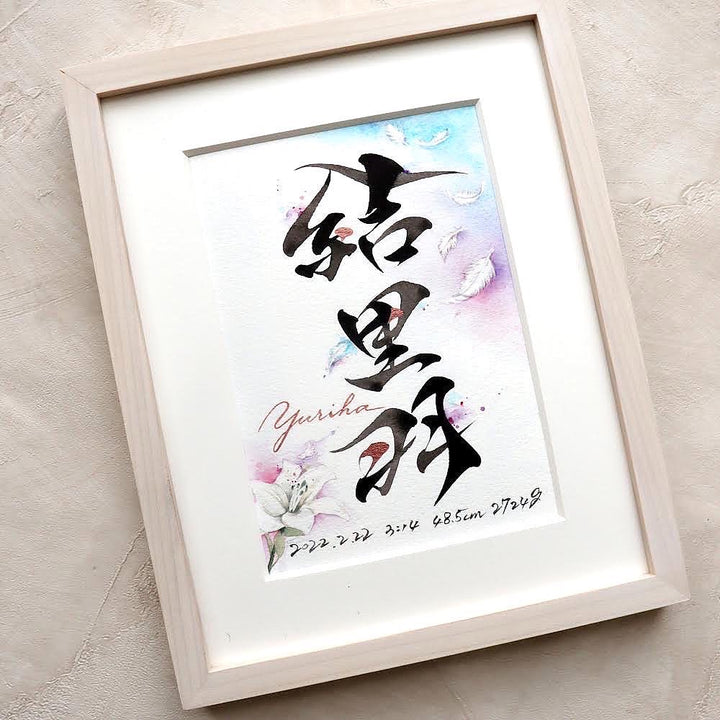 結里羽
Yuriha
2022.2.22 3:14 48.5cm 2724g